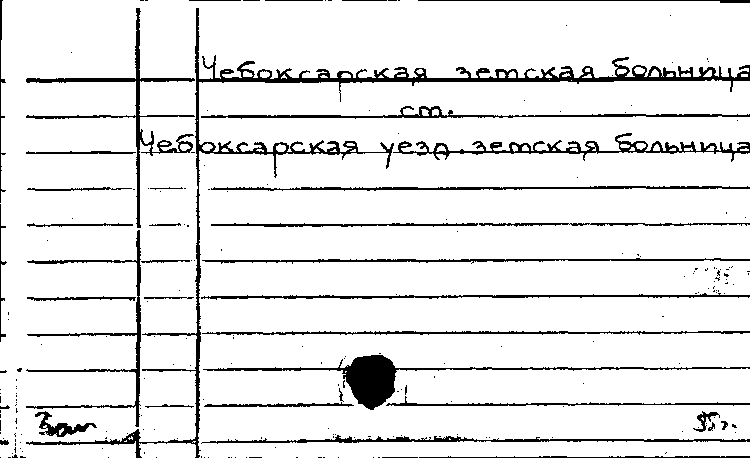 Чебоксарская зетская больница
ст.
Чебоксарская уезд. зетская больница
95 г.